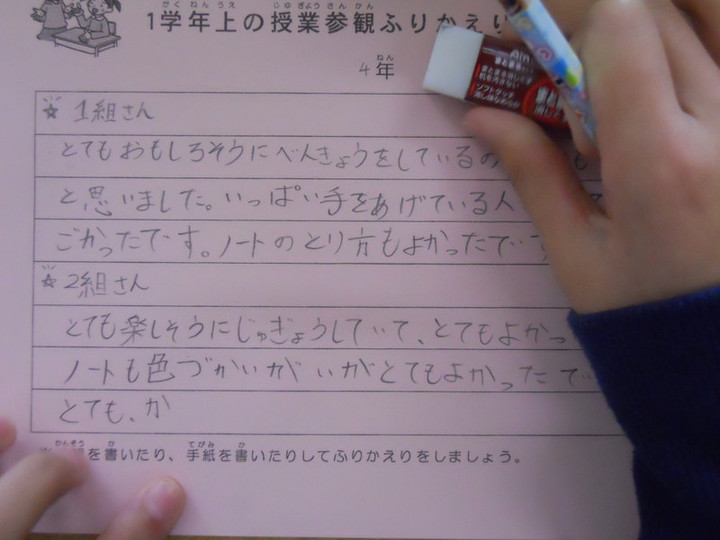 1学年上の授業参観ふりかえり
4年
☆ 1組さん
とてもおもしろそうにべんきょうをしているの も
と思いました。いっぱい手をあげている人 て
ごかったです。ノートのとり方もよかったです
☆ 2組さん
とても楽しそうにじゅぎょうしていて、とてもよかっ
ノートも色づかいがいがとてもよかったで
とても、か
を書いたり、手紙を書いたりしてふりかえりをしましょう。
Ain
まとまる
ソフトタッチ